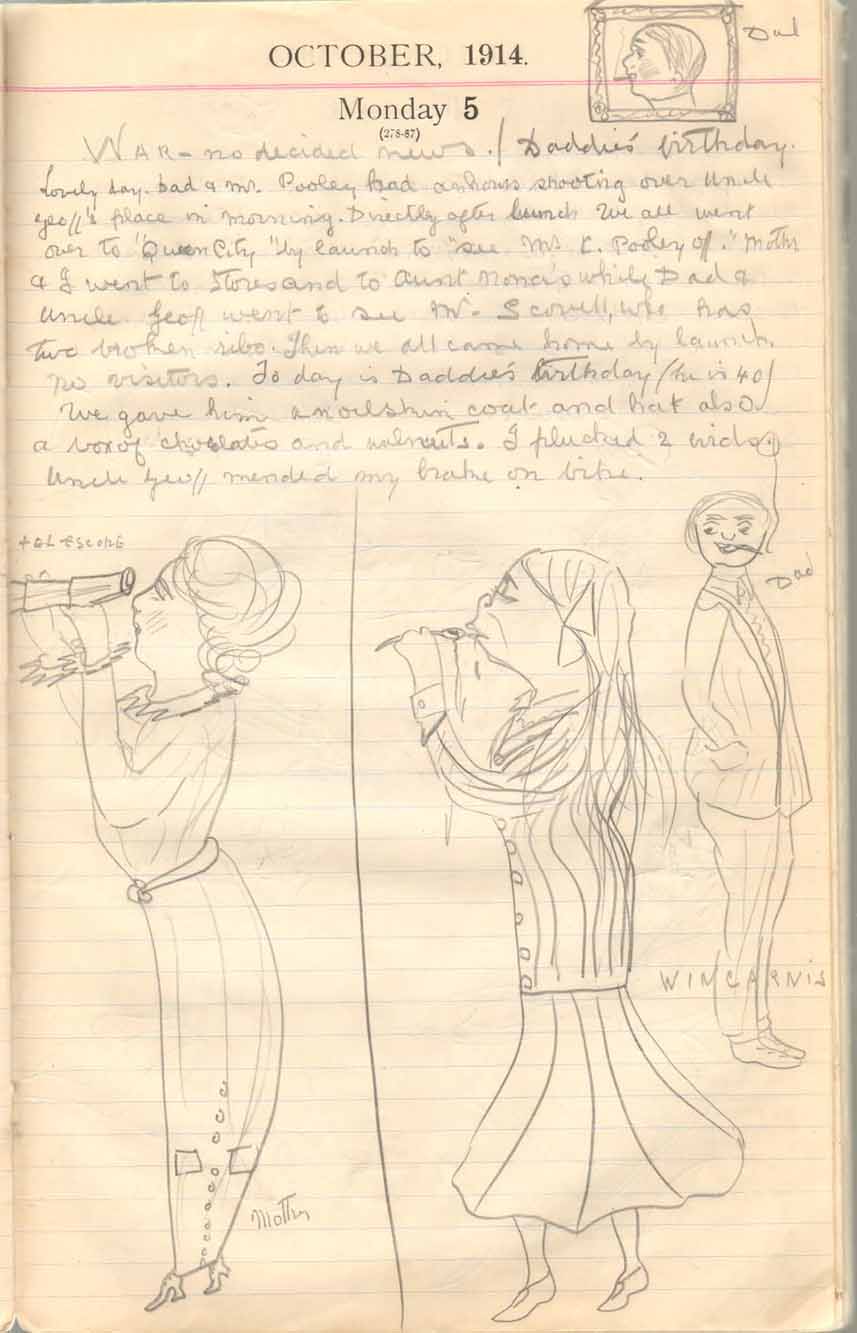 OCTOBER, 1914.
Dad
Monday 5
(278-87)
WAR - no decided news. / Daddie's birthday.
Lovely day. Dad & Mr. Pooley had an hours shooting over Uncle
Geoff's place in morning. Directly after lunch we all went
over to "Queen City" by launch to "see Mr K. Pooley off." Mother
& I went to Stores and to Aunt Nona's while Dad &
Uncle Geoff went to see Mr. Scovell, who has
two broken ribs. Then we all came home by launch.
No visitors. To day is Daddie's birthday (he is 40)
We gave him an oilskin coat and hat also
a box of chocolates and walnuts. I plucked 2 birds.
Uncle Geoff mended my brake on bike.
TELESCOPE
Dad
WINCARNIS
Mother